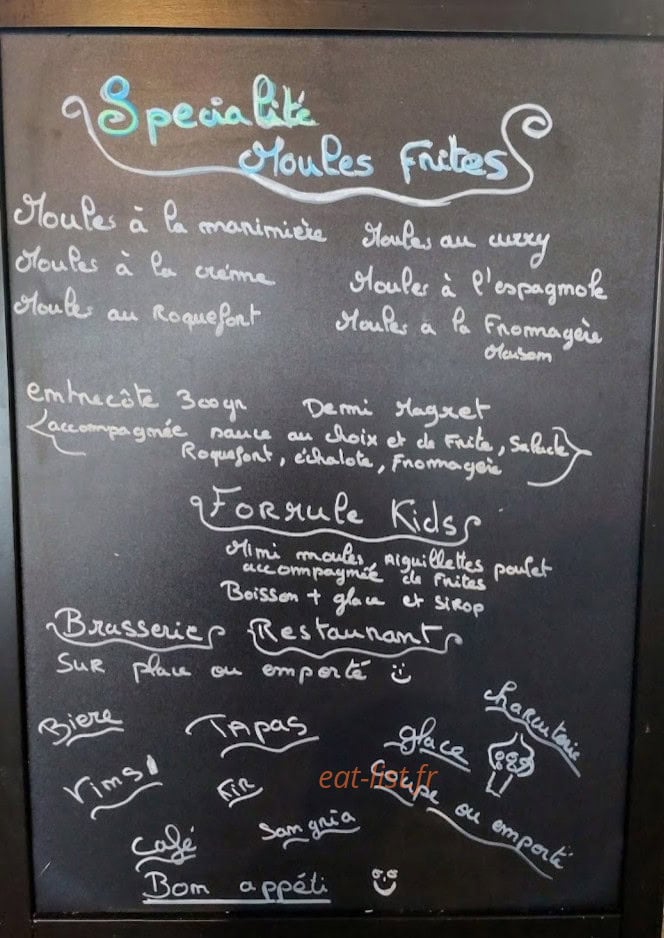 Specialité
Moules Frites
Moules à la marinière
Moules au curry
Moules à la crème
Moules à l'espagnole
Moules au Roquefort
Moules à la Fromagère
Maison
entrecôte 300gr
Demi Magret
accompagnée sauce au choix et de Frite, Salade
Roquefort, échalote, Fromagère
Formule Kids
Mini moules, Aiguillettes poulet
accompagnié de Frites
Boisson + glace et sirop
Brasserie Restaurant
Sur place ou emporté
Biere
Tapas
glace
charcuterie
Vins
Kir
eat-list.fr
Coupe ou emporté
café
Sangria
Bon appéti